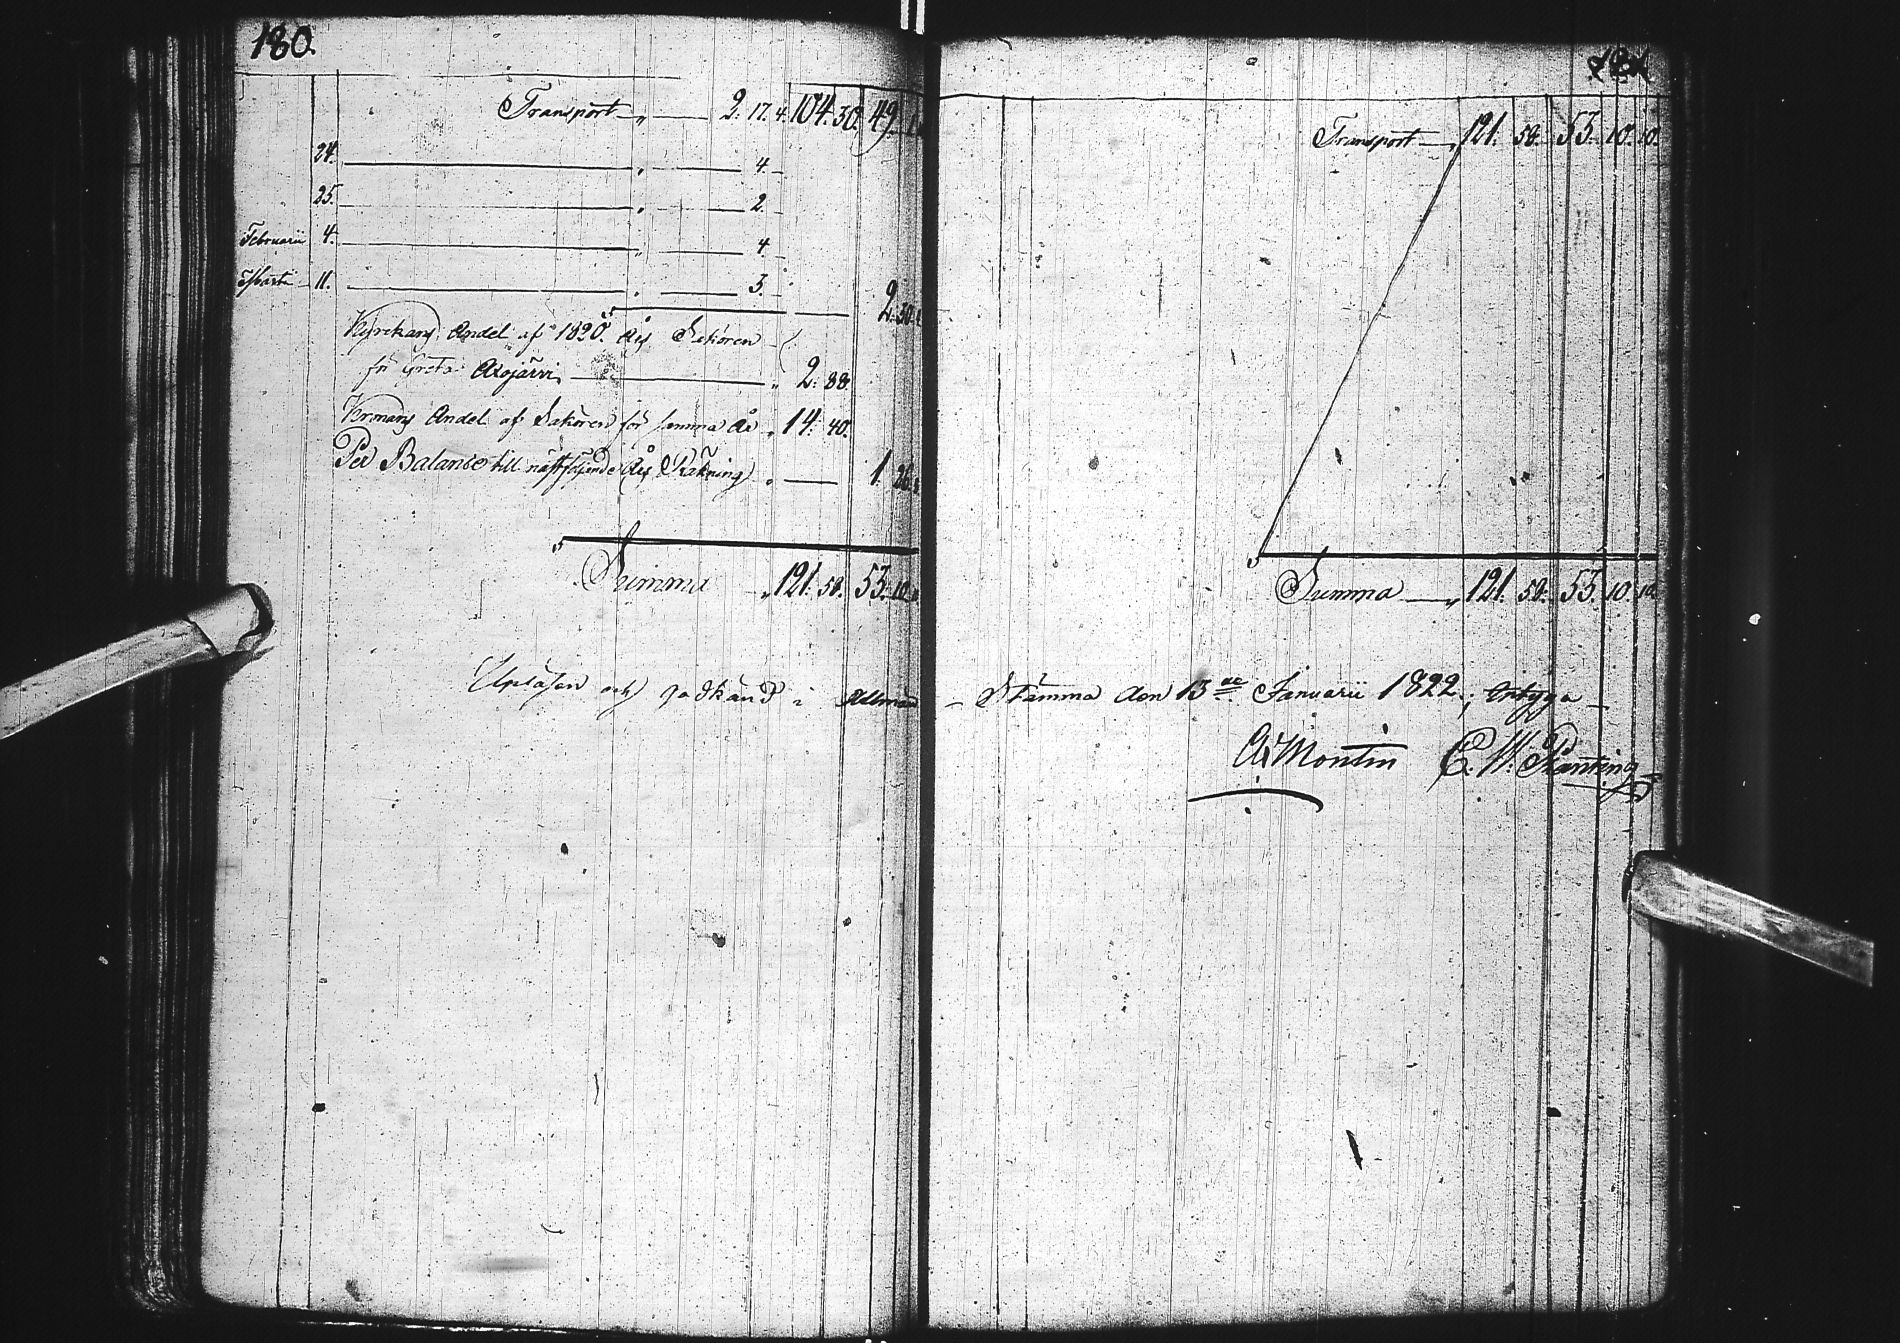 180.
Transport 2. 17. 4. 104. 50. 49.
24. 4.
25. 2.
Februarii 4. 4.
Martii 11. 3.
2. 30.
Kyrckans Andel af 1820. års Sakören
för Greta Arojärvi 2. 88.
Kronans Andel af Sakören för samma år 14. 40.
Per Balance till nästföljande års Räkning 1. 26.
Summa 121. 58. 53. 10.
Upläsen och godkänd i Allmän
181
Transport 121. 58. 53. 10. 10.
Summa 121. 58. 53. 10. 10.
Stämma den 13de Januarii 1822; betyga
Montin E. W.